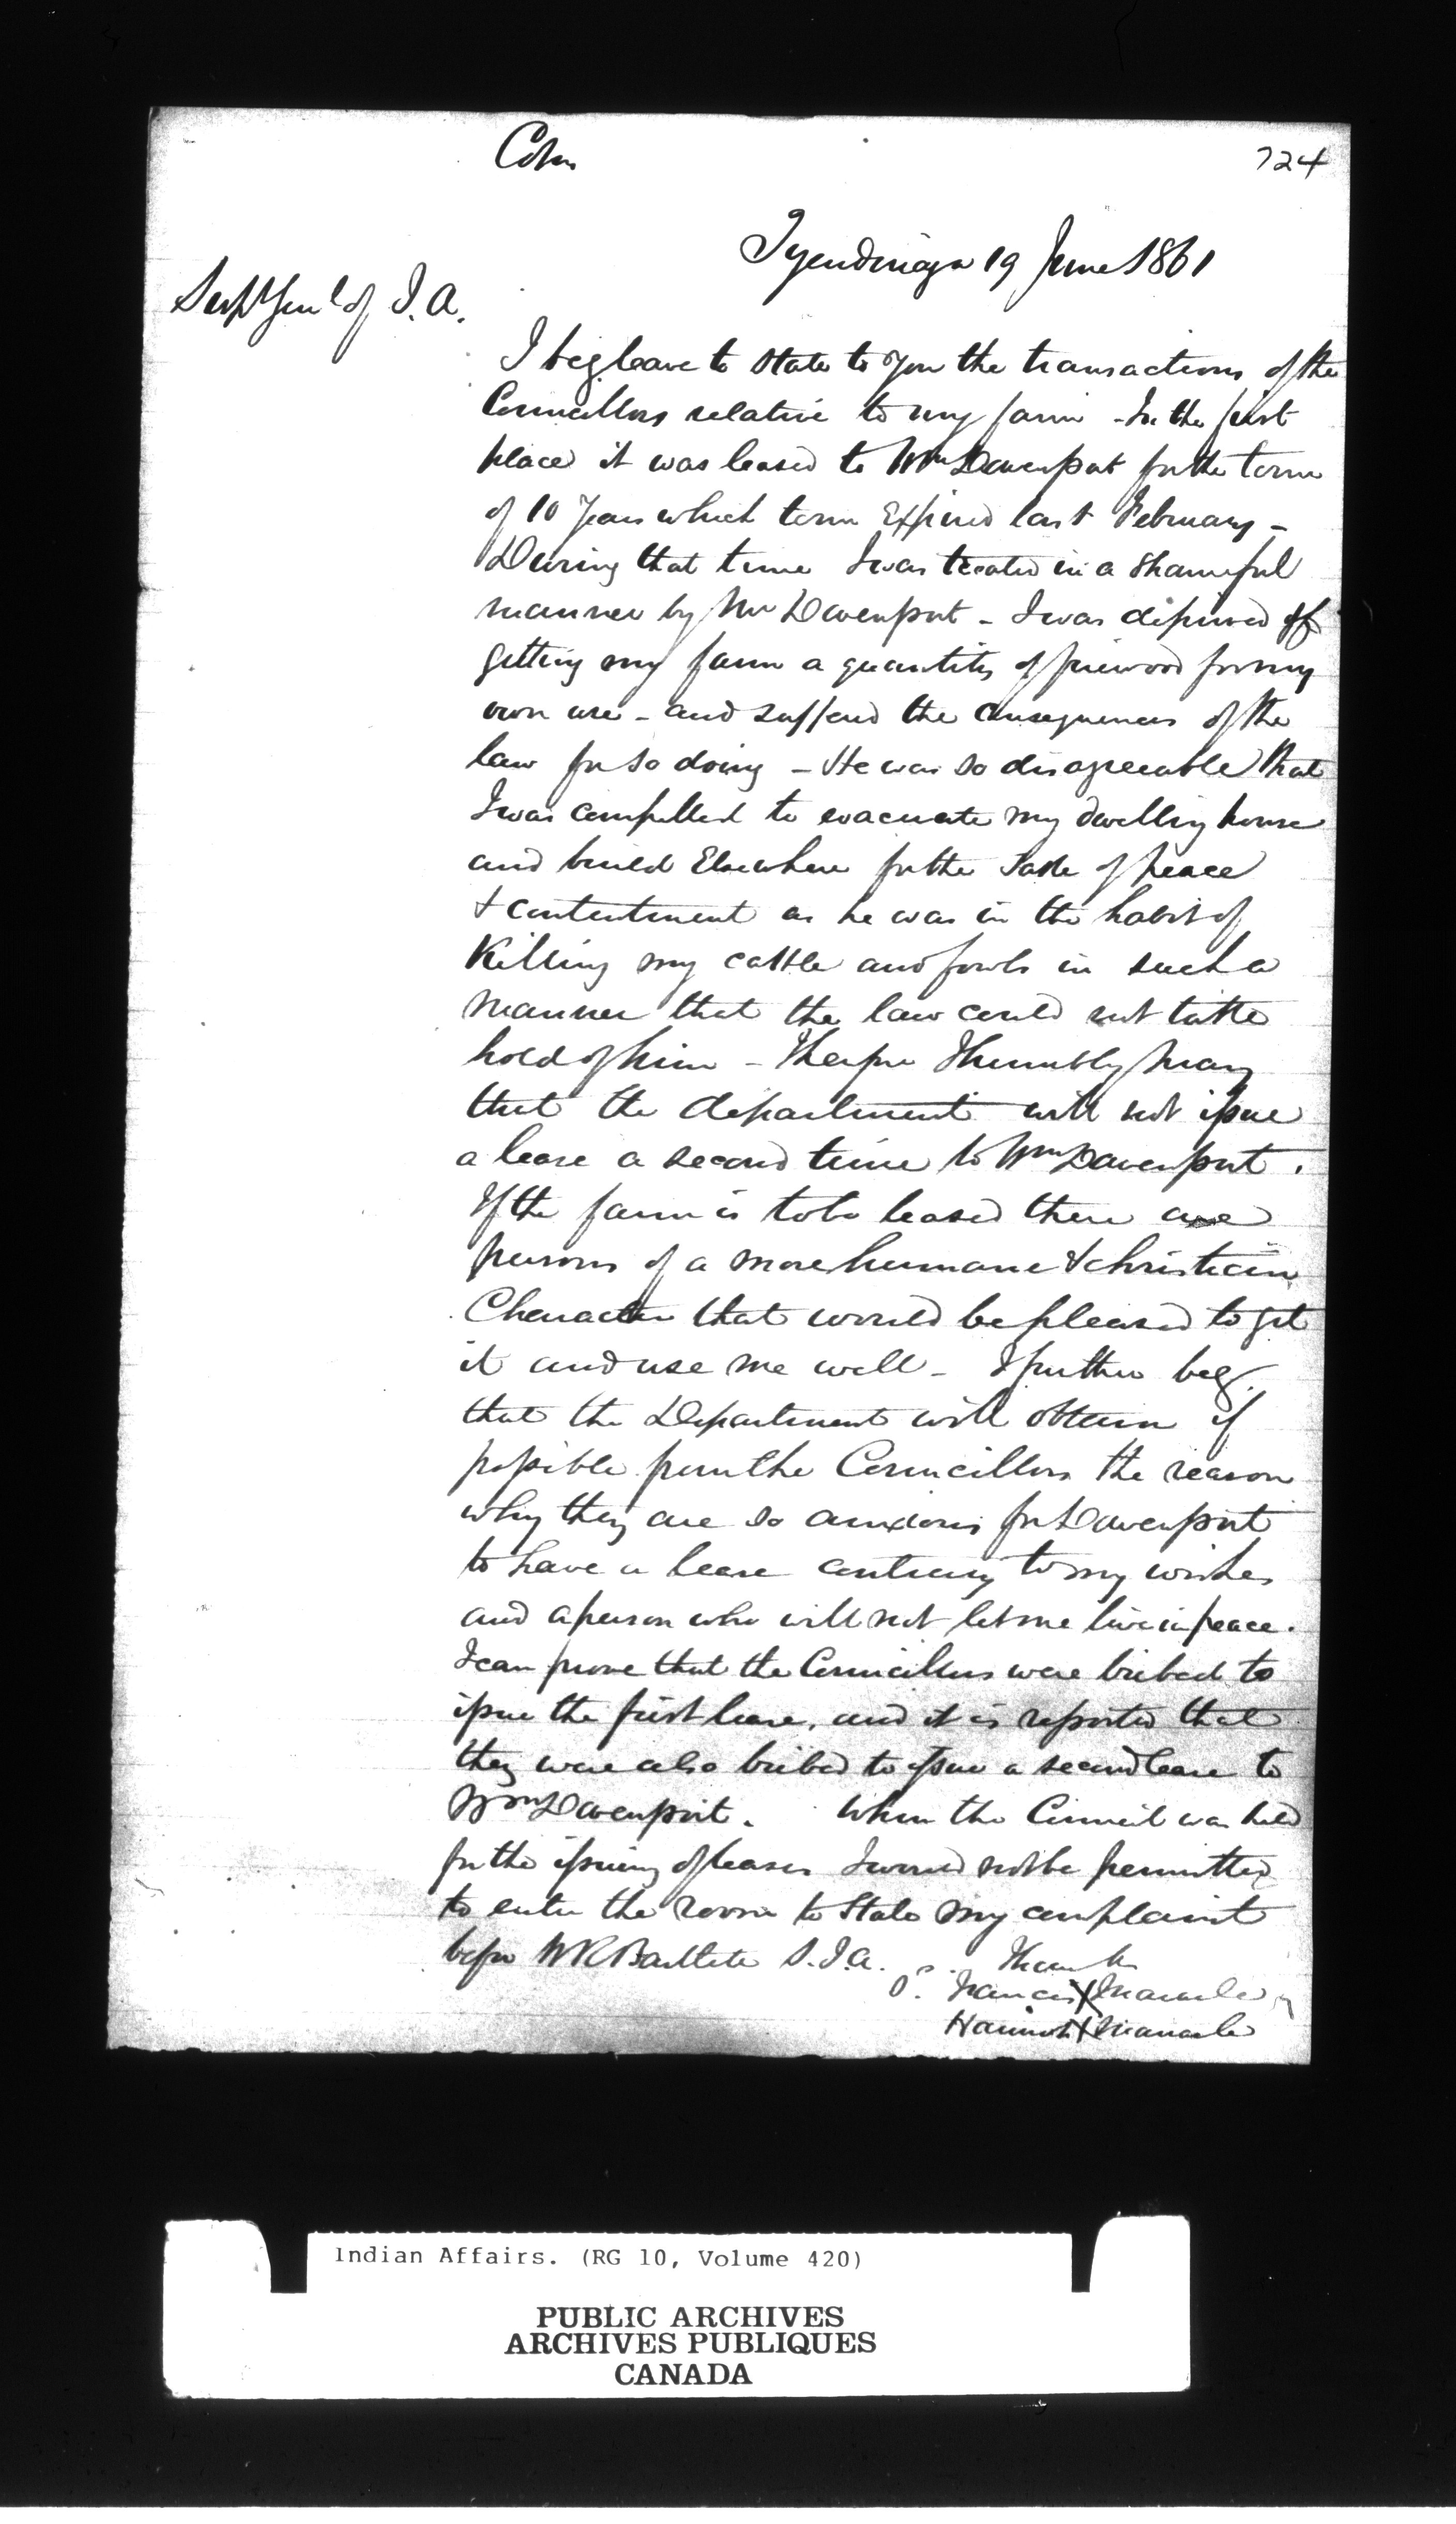 Copy
724
Tyendinaga 19 June 1861
Supt Genl of I. A.
I beg leave to state to you the transactions of the
Councillors relative to my farm - In the first
place it was leased to Wm Davenport for the term
of 10 Years which term Expired last February -
During that time I was treated in a shameful
manner by Mr Davenport - I was deprived of
getting my farm a quantity of firewood for my
own use - and suffered the consequences of the
law for so doing - He was so disagreeable that
I was compelled to evacuate my dwelling house
and build Elsewhere for the sake of peace
& contentment as he was in the habit of
Killing my cattle and fowls in such a
manner that the law could not take
hold of him - Therefore I humbly pray
that the department will not issue
a lease a second time to Wm Davenport.
If the farm is to be leased there are
persons of a more humane & christian
Character that would be pleased to get
it and use me well - I further beg
that the Department will obtain if
possible from the Councillors the reason
why they are so anxious for Davenport
to have a lease contrary to my wishes
and a person who will not let me live in peace.
I can prove that the Councillors were bribed to
issue the first lease, and it is reported that
they were also bribed to issue a second lease to
Wm Davenport. When the Council was held
for the issuing of leases I would not be permitted
to enter the room to State my complaint
before W R Bartlett S.I.A.
Francis X Maracle
Hannah X Maracle
Indian Affairs. (RG 10, Volume 420)
PUBLIC ARCHIVES
ARCHIVES PUBLIQUES
CANADA